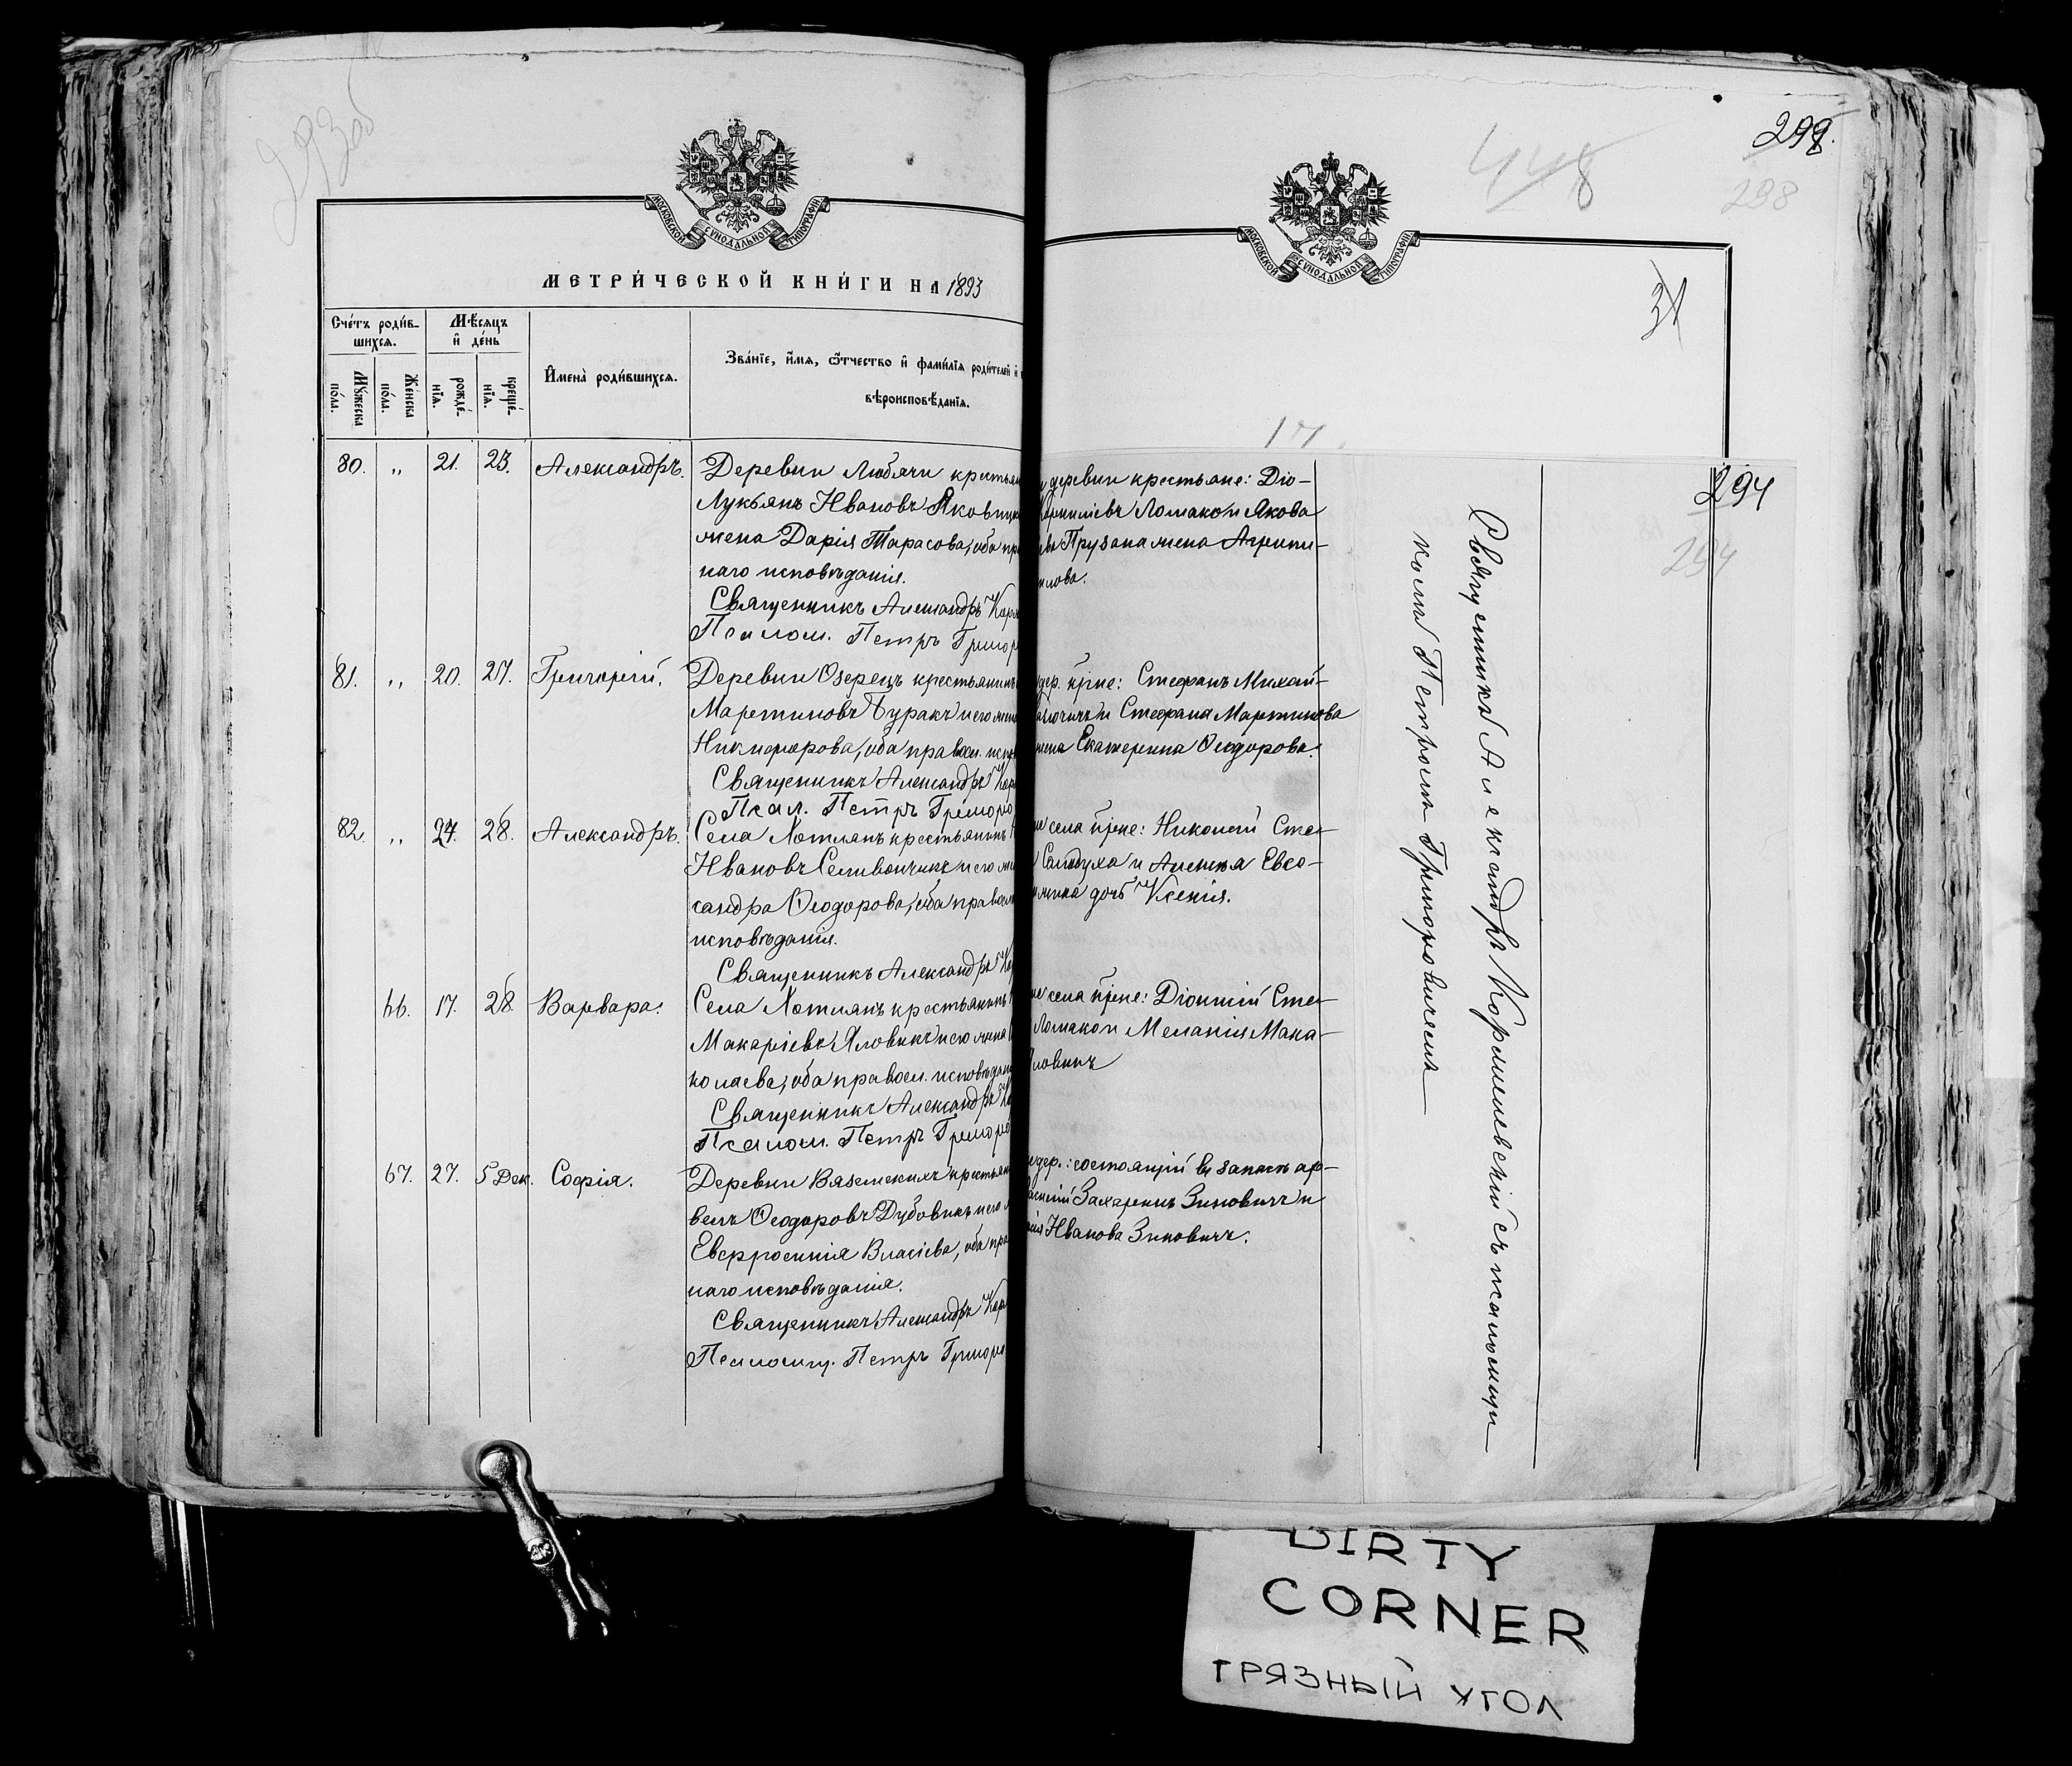 293об
МОСКОВСКОЙ СѴНОДАЛЬНОЙ ТИПОГРАФІИ
МЕТРИ́ЧЕСКОЙ КНИ́ГИ НА 1893
Сче́тъ роди́в-
шихся.
Мѣ́сяцъ
и҆ де́нь
Му́жеска
по́ла.
Же́нска
по́ла.
рожде́-
нїя.
креще́-
нїя.
И҆мена̀ роди́вшихся.
Зва́нїе, и҆́мя, ѻ҆́тчество и҆ фами́лїя роди́телей и҆
вѣроисповѣ́данїя.
80. „ 21. 23. Александръ. Деревни Любячи крестьян
Лукьянъ Ивановъ
жена Дарія Тарасова, оба пр
наго исповѣданія.
Священникъ Александръ Кор
Псалом. Петръ Григор
81. „ 20. 27. Григорій. Деревни Озерецъ крестьянинъ
Мартиновъ Буракъ и его жен
Никифорова, оба правосл. испо
Священникъ Александръ Кор
Псал. Петръ Григоро
82. „ 24. 28. Александръ. Села Хотлянъ крестьянинъ
Ивановъ Селивончикъ и его же
сандра Ѳеодорова, оба правосл
исповѣданія.
Священникъ Александръ Ко
66. 17. 28. Варвара. Села Хотлянъ крестьянинъ
Макаріевъ Яловикъ и его жена
колаева, оба правосл. исповѣдан
Священникъ Александръ Ко
Псалом. Петръ Григоро
67. 27. 5 Дек. Софія. Деревни Вяземскихъ крестьян
велъ Ѳеодоровъ Дубовикъ и его ж
Евфросинія Власіева, оба пра
наго исповѣданія.
Священникъ Александръ Кор
Псаломщ. Петръ Григоро
299.
448
298
МОСКОВСКОЙ СѴНОДАЛЬНОЙ ТИПОГРАФІИ
31
17
294
294
деревни крестьяне: Діо-
Корниліевъ Ломако и Якова
Прузана жена Агрипи-
лова.
дер. кр҃не: Стефанъ Михай-
и Стефана Мартинова
жена Екатерина Ѳеодорова.
села кр҃не: Николай Сте-
и Алексѣя Евсе-
дочь Ксенія.
села кр҃не: Діонисій Сте-
Ломако и Меланія Мака-
ловикъ
дер.: состоящій въ запасѣ ар-
Захаринъ Зиновичъ и
Иванова Зиновичъ.
Священникъ Александръ Кормилевскій съ псаломщи-
комъ Петромъ Григоровичемъ
DIRTY
CORNER
ГРЯЗНЫЙ УГОЛ